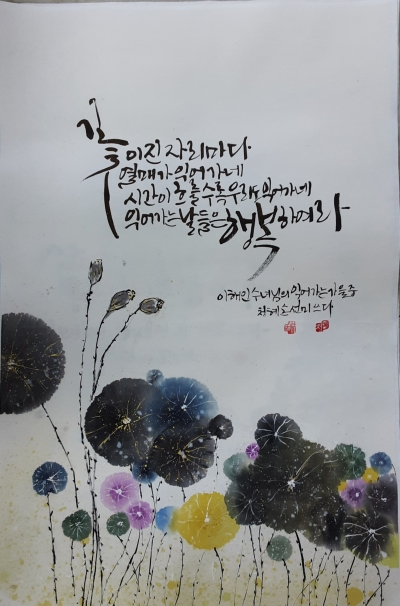 꽃이 진 자리마다
열매가 익어가네
시간이 흐를수록 우리도 익어가네
익어가는 날들은 행복하여라
이해인 수녀님의 익어가는 가을 중
선미 쓰다